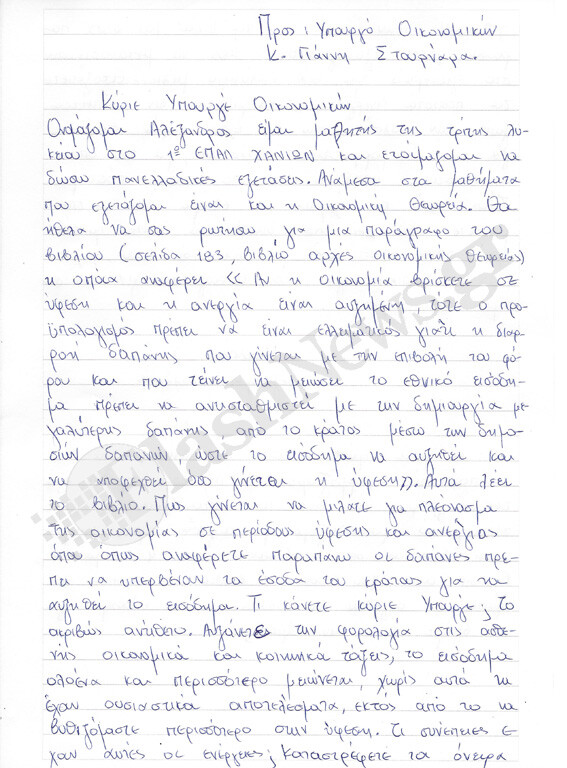 Προς: Υπουργό Οικονομικών
κ. Γιάννη Στουρνάρα.
Κύριε Υπουργέ Οικονομικών
Ονομάζομαι Αλέξανδρος είμαι μαθητής της τρίτης λυ-
κείου στο 1º ΕΠΑΛ ΧΑΝΙΩΝ και ετοιμάζομαι να
δώσω πανελλαδικές εξετάσεις. Ανάμεσα στα μαθήματα
που εξετάζομαι είναι και η Οικονομική Θεωρεία. Θα
ήθελα να σας ρωτήσω για μια παράγραφο του
βιβλίου (σελίδα 183, βιβλίο αρχές οικονομικής θεωρείας)
η οποία αναφέρει << Αν η οικονομία βρίσκετε σε
ύφεση και η ανεργία είναι αυξημένη, τότε ο προ-
ϋπολογισμός πρέπει να είναι ελλειματικός γιατί η διαρ-
ροή δαπάνης που γίνεται με την επιβολή του φό-
ρου και που τείνει να μειώσει το εθνικό εισόδη-
μα πρέπει να αντισταθμιστεί με την δημιουργία με-
γαλύτερης δαπάνης από το κράτος μέσω των δημο-
σιών δαπανών, ώστε το εισόδημα να αυξηθεί και
να αποφεχθεί όσο γίνεται η ύφεση>>. Αυτά λέει
το βιβλίο. Πως γίνεται να μιλάτε για πλεόνασμα
της οικονομίας σε περίοδους ύφεσης και ανεργίας
όπου όπως αναφέρετε παραπάνω οι δαπάνες πρέ-
πει να υπερβέναν τα έσοδα του κράτους για να
αυξηθεί το εισόδημα. Τι κάνετε κύριε Υπουργέ; το
ακριβώς αντίθετο. Αυξάνετε την φορολογία στις ασθε-
νής οικονομικά και κοινωνικά τάξεις, το εισόδημα
ολοένα και περισσότερο μειώνεται, χωρίς αυτά να
έχουν ουσιαστικά αποτελέσματα, εκτός από το να
βυθιζόμαστε περισσότερο στην ύφεση. Τι συνέπειες έ-
χουν αυτές οι ενέργειες; Καταστρέφετε τα όνειρα
FlashNews.gr